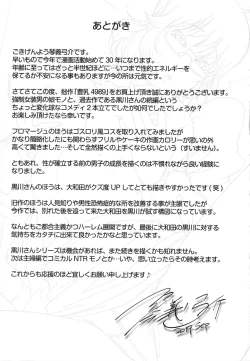 あとがき
ごきげんよう琴義弓介です。
早いもので今年で漫画活動始めて30年になります。
年齢に至ってはざっと半世紀ほどに…いつまで性的エネルギーを
保てるか不安になる事もありますが今の所は元気です。
さてさてこの度、拙作「豊乳4989」をお買上げ頂き誠にありがとうございます。
強制女装の娘モノと、過去作である黒川さんの続編という
ちょっと変化球なコメディ2本立てでしたが如何でしたでしょうか？
お楽しみ頂けたなら幸いです。
フロマージュのほうはゴスロリ風コスを取り入れてみましたが
かなり簡略化したにも関わらずフリルやケーキの作画カロリーが思いの外
高くて驚きました…そして全然描くの上手くならないという（すいません）。
ともあれ、性が確立する前の男子の成長を描くのは不慣れながら良い経験に
なりました。
黒川さんのほうは、大和田がクズ度UPしてとても描きやすかったです（笑）
旧作のほうは人見知りや男性恐怖症的な所を改善する事が主題でしたが
今作では、別れた後を追って来た大和田を黒川が試す構造になっています。
なんともご都合主義かつハーレム展開ですが、最後に大和田の黒川に対する
気持ちをカタチに出来て良かったかなと思っています。
黒川さんシリーズは機会があれば、また続きを描くかも知れません。
次は主婦編でコミカルNTRモノとか…いや、思い立ったらその時考えます。
これからも応援のほどを宜しくお願い申し上げます♪